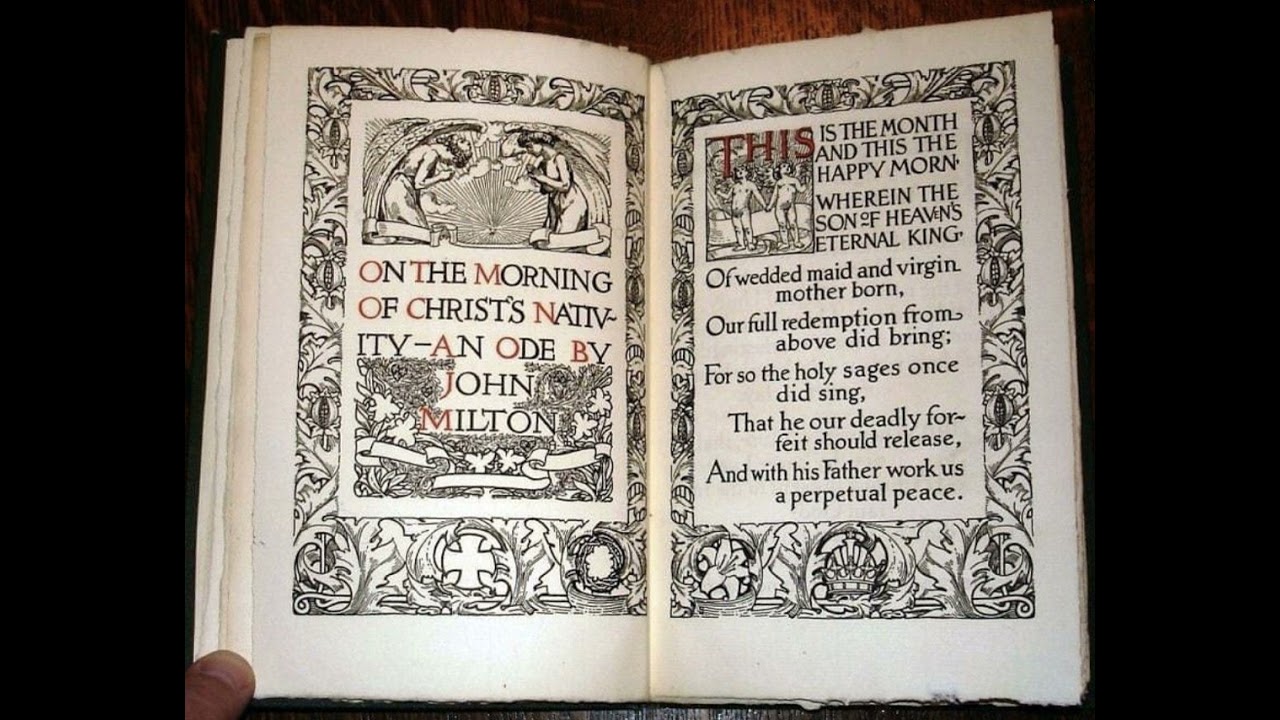 ON THE MORNING
OF CHRIST'S NATIV-
ITY-AN ODE BY
JOHN
MILTON
THIS IS THE MONTH
AND THIS THE
HAPPY MORN
WHEREIN THE
SON OF HEAVEN'S
ETERNAL KING
Of wedded maid and virgin
mother born,
Our full redemption from
above did bring;
For so the holy sages once
did sing,
That he our deadly for-
feit should release,
And with his Father work us
a perpetual peace.